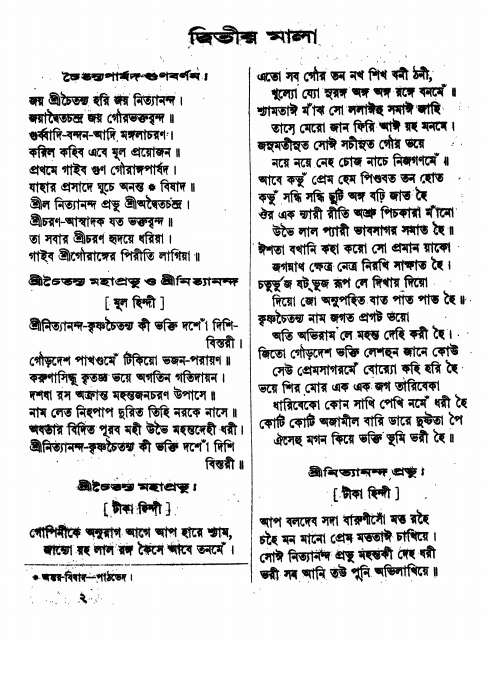 দ্বিতীয় মালা
চৈতন্যপার্ষদ-গুণবর্ণন।
জয় শ্রীচৈতন্য হরি জয় নিত্যানন্দ।
জয়াদ্বৈতচন্দ্র জয় গৌরভক্তবৃন্দ॥
গুর্ব্বাদি-বন্দন-আদি মঙ্গলাচরণ।
করিল কহিব এবে মূল প্রয়োজন॥
প্রথমে গাইব গুণ গৌরাঙ্গপার্ষদ।
যাহার প্রসাদে ঘুচে অনন্ত * বিষাদ॥
শ্রীল নিত্যানন্দ প্রভু শ্রীঅদ্বৈতচন্দ্র।
শ্রীচরণ-আস্বাদক যত ভক্তবৃন্দ॥
তা সবার শ্রীচরণ হৃদয়ে ধরিয়া।
গাইব শ্রীগৌরাঙ্গের পিরীতি লাগিয়া॥
শ্রীচৈতন্য মহাপ্রভু ও শ্রীনিত্যানন্দ
[ মূল হিন্দী ]
শ্রীনিত্যানন্দ-কৃষ্ণচৈতন্য কী ভক্তি দশোঁ দিশি-
বিস্তরী।
গৌড়দেশ পাখণ্ডমেঁ টিকিয়ো ভজন-পরায়ণ॥
করুণাসিন্ধু কৃতজ্ঞ ভয়ে অগতিন গতিদায়ন।
দশধা রস অক্রান্ত মহন্তজনচরণ উপাসে॥
নাম লেত নিহপাপ দুরিত তিহি নরকে নাসে॥
অবতার বিদিত পূরব মহী উভৈ মহন্তদেহী ধরী।
শ্রীনিত্যানন্দ-কৃষ্ণচৈতন্য কী ভক্তি দশোঁ দিশি
বিস্তরী॥
শ্রীচৈতন্য মহাপ্রভু।
[ টীকা হিন্দী ]
গোপিনীকে অনুরাগ আগে আপ হারে শ্যাম,
জান্তো রহ লাল রঙ্গ কৈসে আবে তনমেঁ।
* অন্তর-বিষাদ—পাঠভেদ।
২
এতো সব গৌর তন নখ শিখ বনী ঠনী,
খুল্যো যো সুরঙ্গ অঙ্গ অঙ্গ রঙ্গে বনমেঁ॥
শ্যামতাঈ মাঁঝ সো ললাঈহু সমাঈ জাহি
তাসে মেরো জান ফিরি আঈ রহ মনমে।
জসুমতীসুত সোঈ সচীসুত গৌর ভয়ে
নয়ে নয়ে নেহ চোজ নাচে নিজগণমেঁ॥
আবে কভুঁ প্রেম হেম পিণ্ডবত তন হোত
কভুঁ সন্ধি সন্ধি ছুটি অঙ্গ বঢ়ি জাত হৈ
ঔর এক ন্যারী রীতি অশ্রু পিচকারা মাঁনো
উভৈ লাল প্যারী ভাবসাগর সমাত হৈ॥
ঈশতা বখানি কহা করো সো প্রমান য়াকো
জগন্নাথ ক্ষেত্র নেত্র নিরখি সাক্ষাত হৈ।
চতুর্ভুজ ষট্ভুজ রূপ লে দিখায় দিয়ো
দিয়ো জো অনুপহিত বাত পাত পাত হৈ॥
কৃষ্ণচৈতন্য নাম জগত প্রগট ভয়ো
অতি অভিরাম লে মহন্ত দেহি করী হৈ।
জিতো গৌড়দেশ ভক্তি লেশহুন জানে কোউ
সেউ প্রেমসাগরমেঁ বোর‍্যো কহি হরি হৈ
ভয়ে শির মোর এক এক জগ তারিবেকা
ধারিবেকো কোন সাখি পেখি নমেঁ ধরী হৈ
কোটি কোটি অজামীল বারি ডারে দুষ্টতা পৈ
ঐসেহু মগন কিয়ে ভক্তি ভূমি ভরী হৈ॥
শ্রীনিত্যানন্দ প্রভু।
[ টীকা হিন্দী ]
আপ বলদেব সদা বারুণীসোঁ মত্ত রহৈ
চহৈ মন মানো প্রেম মত্ততাঈ চাখিয়ে।
সোঈ নিত্যানন্দ প্রভু মহন্তকী দেহ ধরী
ভরী সব আনি তউ পুনি অভিলাখিয়ে॥